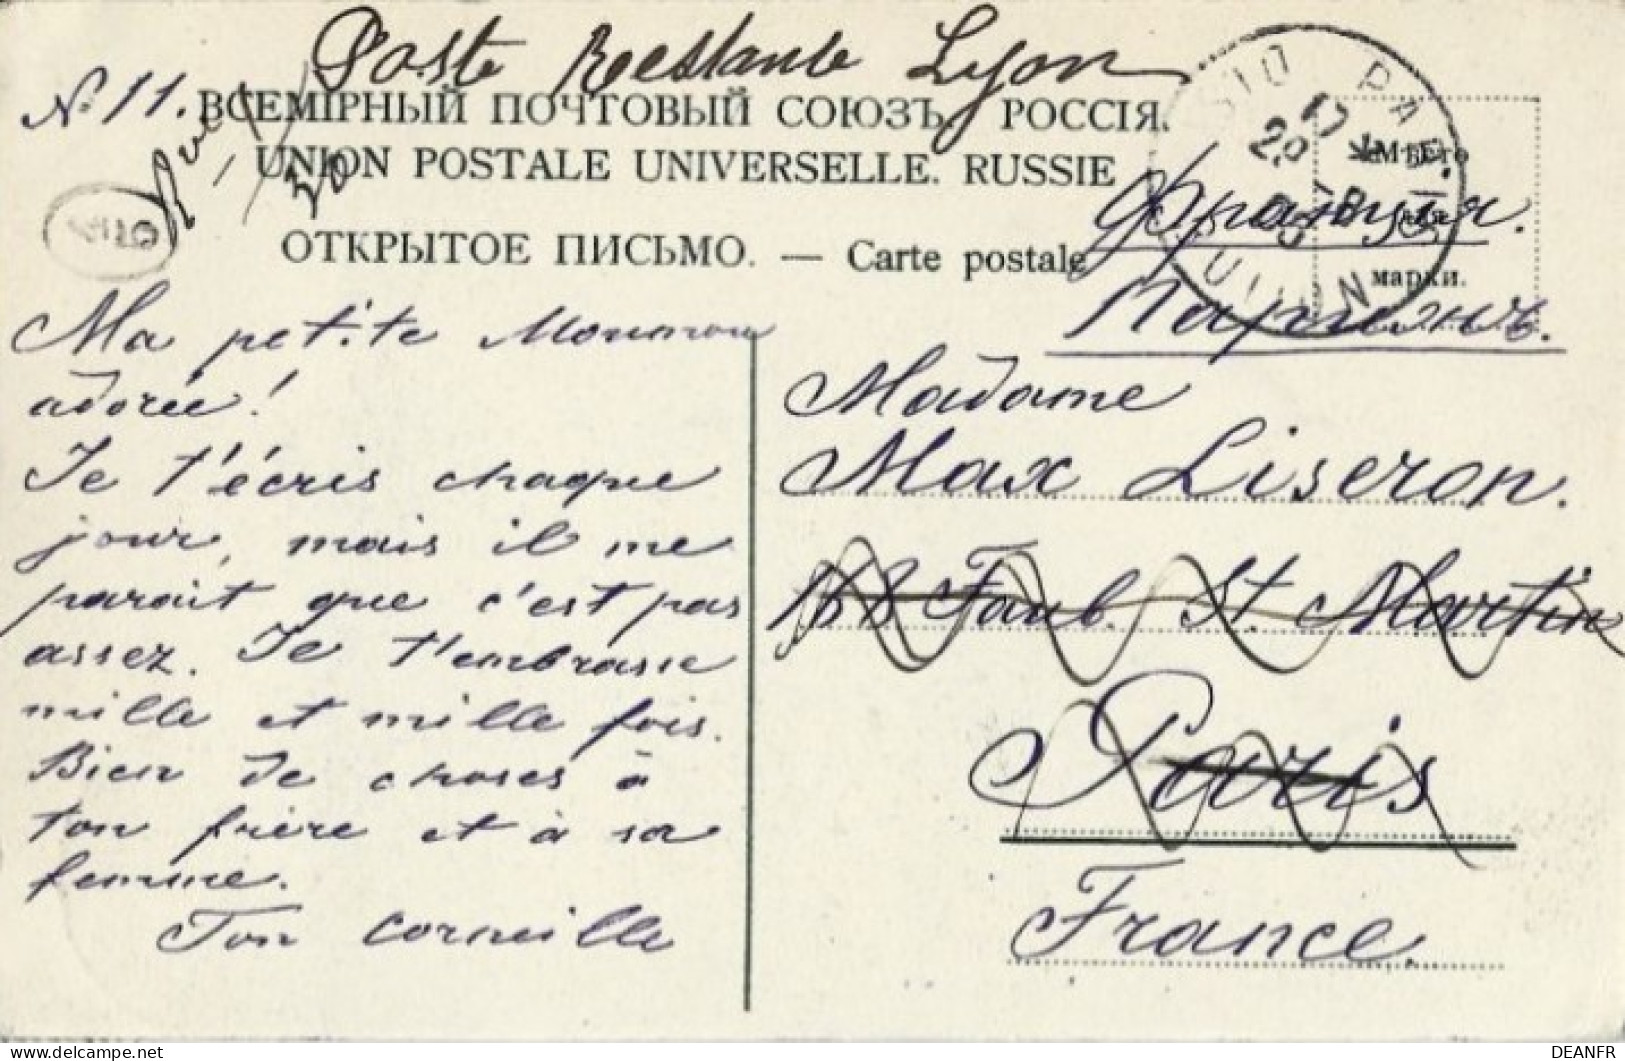 Poste Restante Lyon
N. 11.
ВСЕМІРНЫЙ ПОЧТОВЫЙ СОЮЗЪ. РОССІЯ.
UNION POSTALE UNIVERSELLE. RUSSIE
ОТКРЫТОЕ ПИСЬМО. — Carte postale
Мѣсто
для
марки.
Франція.
Парижъ.
Ma petite Moumou
adorée!
Je t'écris chaque
jour, mais il me
parait que c'est pas
assez. Je t'embrasse
mille et mille fois.
Bien de choses à
ton frère et à sa
femme.
Ton corneille
Madame
Max Liseron.
Faub. St. Martin
Paris
France.
DEANFR